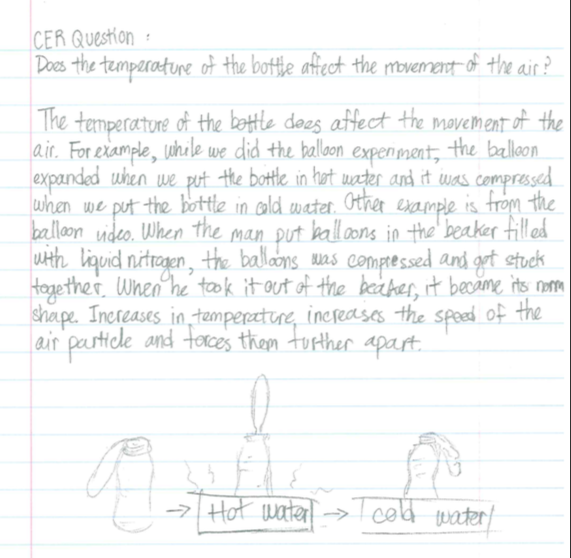 CER Question :
Does the temperature of the bottle affect the movement of the air?
The temperature of the bottle does affect the movement of the
air. For example, while we did the balloon experiment, the balloon
expanded when we put the bottle in hot water and it was compressed
when we put the bottle in cold water. Other example is from the
balloon video. When the man put balloons in the beaker filled
with liquid nitrogen, the balloons was compressed and got stuck
together. When he took it out of the beaker, it became its norm
shape. Increases in temperature, increases the speed of the
air particle and forces them further apart.
→ Hot water → cold water